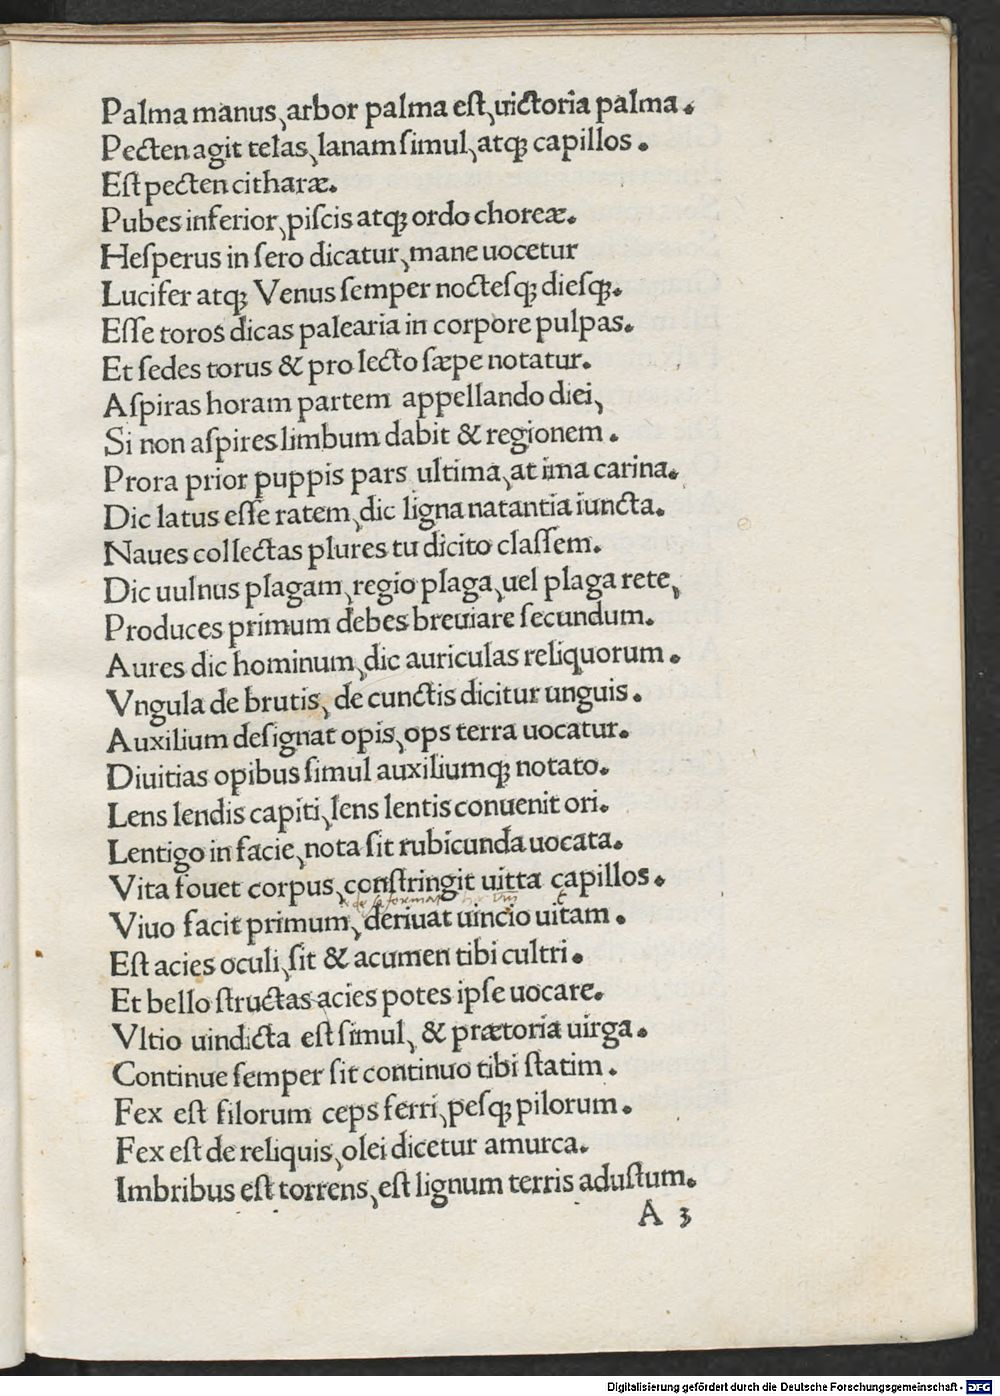 Palma manus, arbor palma est, uictoria palma.
Pecten agit telas, lanam simul, atqꝫ capillos.
Est pecten citharæ.
Pubes inferior, piscis atqꝫ ordo choreæ.
Hesperus in sero dicatur, mane uocetur
Lucifer atqꝫ Venus semper noctesqꝫ diesqꝫ.
Esse toros dicas palearia in corpore pulpas.
Et sedes torus & pro lecto sæpe notatur.
Aspiras horam partem appellando diei,
Si non aspires limbum dabit & regionem.
Prora prior puppis pars ultima, at ima carina.
Dic latus esse ratem, dic ligna natantia iuncta.
Naues collectas plures tu dicito classem.
Dic uulnus plagam, regio plaga, uel plaga rete,
Produces primum debes breuiare secundum.
Aures dic hominum, dic auriculas reliquorum.
Vngula de brutis, de cunctis dicitur unguis.
Auxilium designat opis, ops terra uocatur.
Diuitias opibus simul auxiliumqꝫ notato.
Lens lendis capiti, lens lentis conuenit ori.
Lentigo in facie, nota sit rubicunda uocata.
Vita fouet corpus, constringit uitta capillos.
Viuo facit primum, deriuat uincio uitam.
Est acies oculi, sit & acumen tibi cultri.
Et bello structas acies potes ipse uocare.
Vltio uindicta est simul, & prætoria uirga.
Continue semper sit continuo tibi statim.
Fex est filorum ceps ferri, pesqꝫ pilorum.
Fex est de reliquis, olei dicetur amurca.
Imbribus est torrens, est lignum terris adustum.
A 3
Digitalisierung gefördert durch die Deutsche Forschungsgemeinschaft - DFG